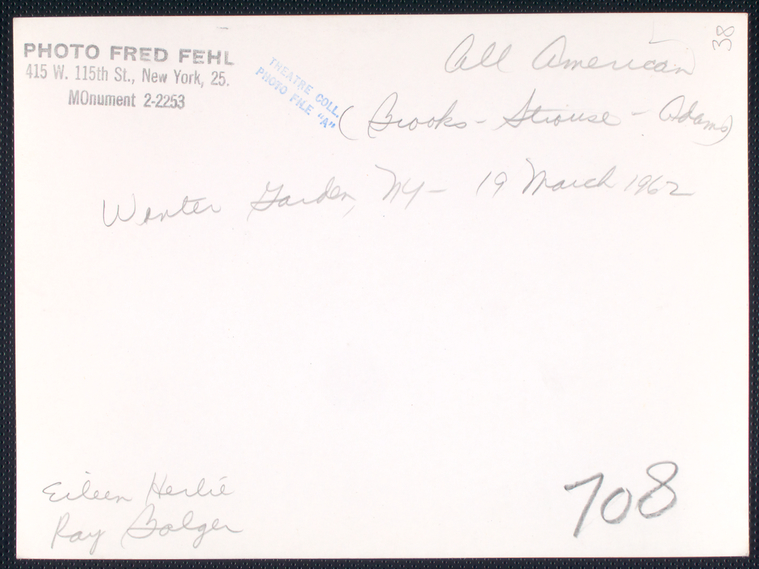 PHOTO FRED FEHL
415 W. 115th St., New York, 25.
MOnument 2-2253
THEATRE COLL.
PHOTO FILE "A"
38
All American
(Brooks - Strouse - Adams)
Winter Garden, NY - 19 March 1962
Eileen Herlie
Ray Bolger
708